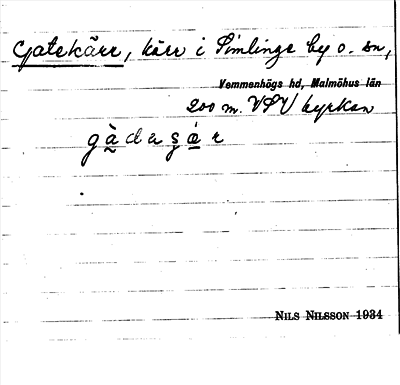 Gatekärr, kärr i Simlinge by o. sn,
Vemmenhögs hd, Malmöhus län
200 m. VSV kyrkan
NILS NILSSON 1934